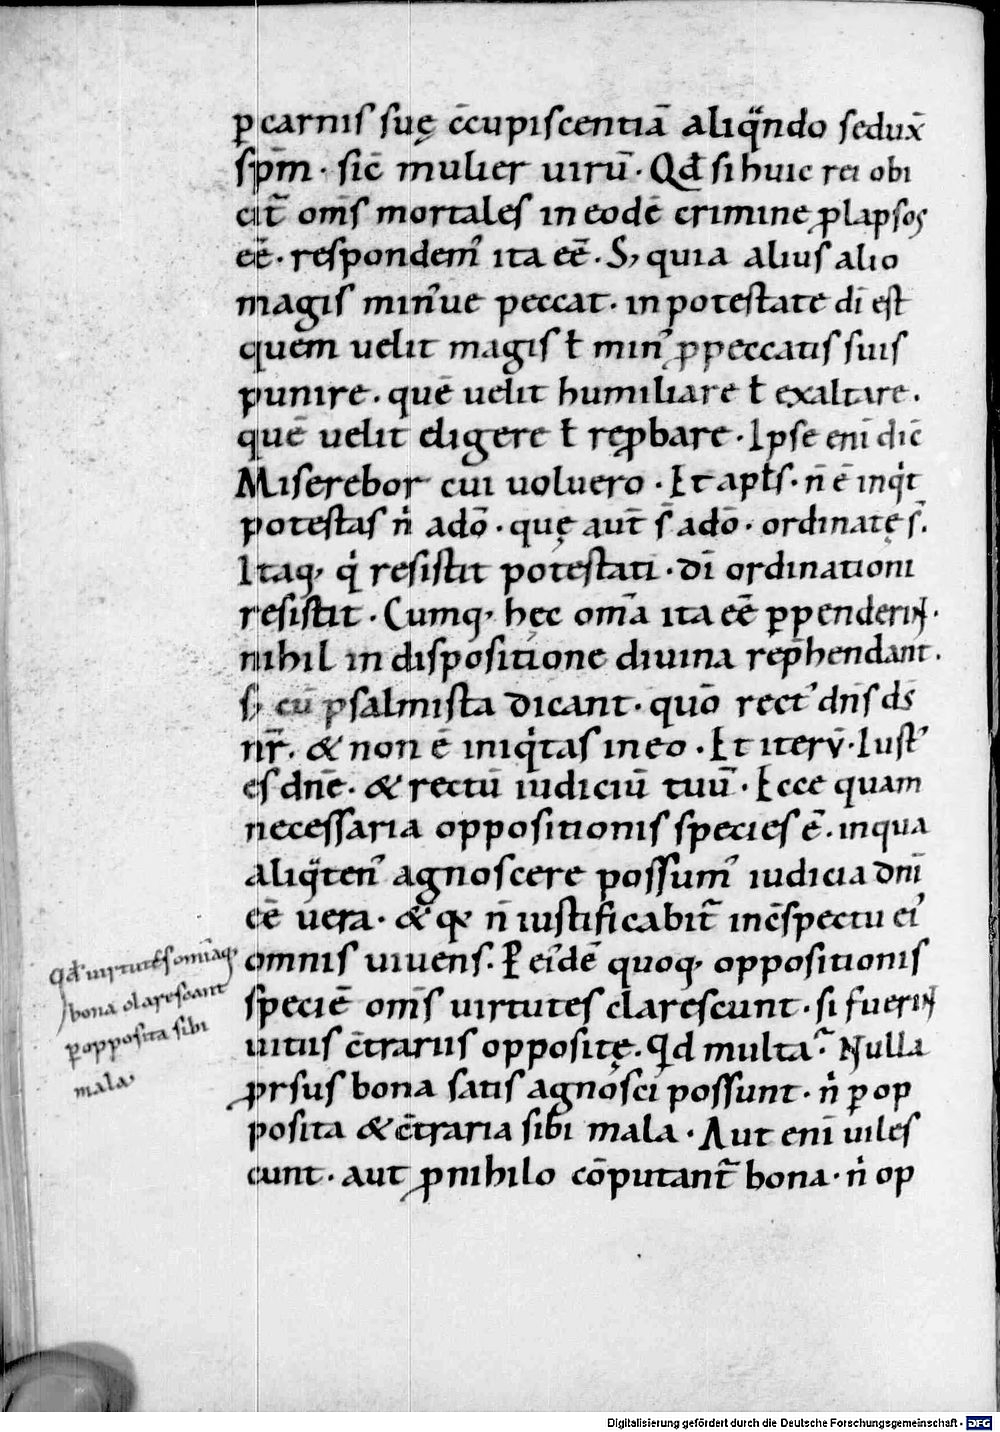 ꝑ carnis suę c̄cupiscentiā aliqͣndo sedux̄
sp̄m · sic̄ mulier uirū · Qd̄ si huic rei obi
cit᷑ om̄s mortales in eodē crimine ꝓlapsos
eē · respondem᷒ ita eē · S; quia alius alio
magis min᷒ue peccat · in potestate dī est
quem uelit magis ł min᷒ ꝓ peccatis suis
punire · quē uelit humiliare ł exaltare ·
quē uelit eligere ł reꝓbare · Ipse enī dic̄
Miserebor cui uoluero · Et apłs · n̄ ē inqͥt
potestas nͥ adō · quę aut̄ s̄ adō · ordinatę s̄.
Itaq; qͥ resistit potestati · dī ordinationi
resistit · Cumq; hęc om̄a ita eē ꝑpenderint ·
nihil in dispositione diuina rep̄hendant.
s; cū psalmista dicant · quō rect᷒ dn̄s ds̄
nr̄ · & non ē iniqͥtas in eo · Et iterū · Iust᷒
es dn̄e · & rectū iudiciū tuū · Ecce quam
necessaria oppositionis species ē · in qua
aliqͣten᷒ agnoscere possum᷒ iudicia dnī
eē uera · & qꝫ n̄ iustificabit᷑ in c̄spectu ei᷒
omnis uiuens · P ei᷒dē quoq; oppositionis
speciē om̄s uirtutes clarescunt · si fuerint
uitiis c̄trariis oppositę. Qd multa? Nulla
ꝓrsus bona satis agnosci possunt · nͥ ꝑ op
posita & c̄traria sibi mala · Aut enī uiles
cunt · aut ꝓ nihilo cōputant᷑ bona · nͥ op
Qd̄ uirtutes omiaq;
bona clarescant
ꝑ opposita sibi
mala
Digitalisierung gefördert durch die Deutsche Forschungsgemeinschaft - DFG